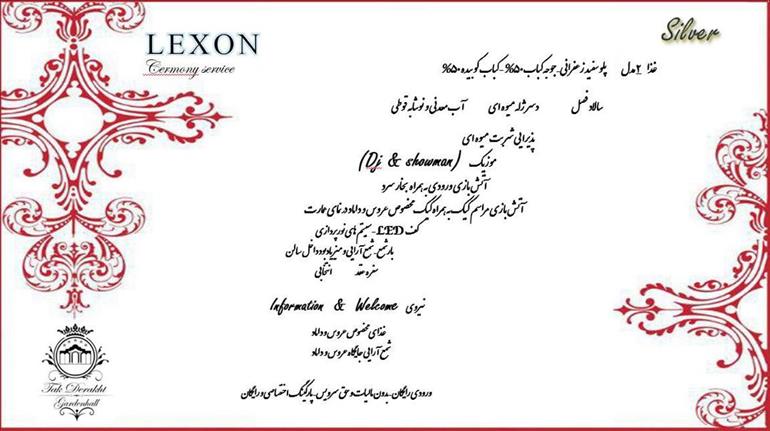 LEXON
Cermony service
Silver
غذا ۲ مدل پلو سفید زعفرانی - جوجه کباب ۵۰% - کباب کوبیده ۵۰%
سالاد فصل دسر ژله میوه ای آب معدنی و نوشابه قوطی
پذیرایی شربت میوه ای
موزیک (Dj & showman)
آتش بازی ورودی به همراه بخار سرد
آتش بازی مراسم کیک به همراه کیک مخصوص عروس و داماد در نمای عمارت
کف LED - سیستم های نورپردازی
بار شمع - شمع آرایی و میز یادبود داخل سالن
سفره عقد انتخابی
نیروی Information & Welcome
غذای مخصوص عروس و داماد
شمع آرایی جایگاه عروس و داماد
ورودی رایگان - بدون مالیات و حق سرویس - پارکینگ اختصاصی و رایگان
Tak Derakht
Gardenhall